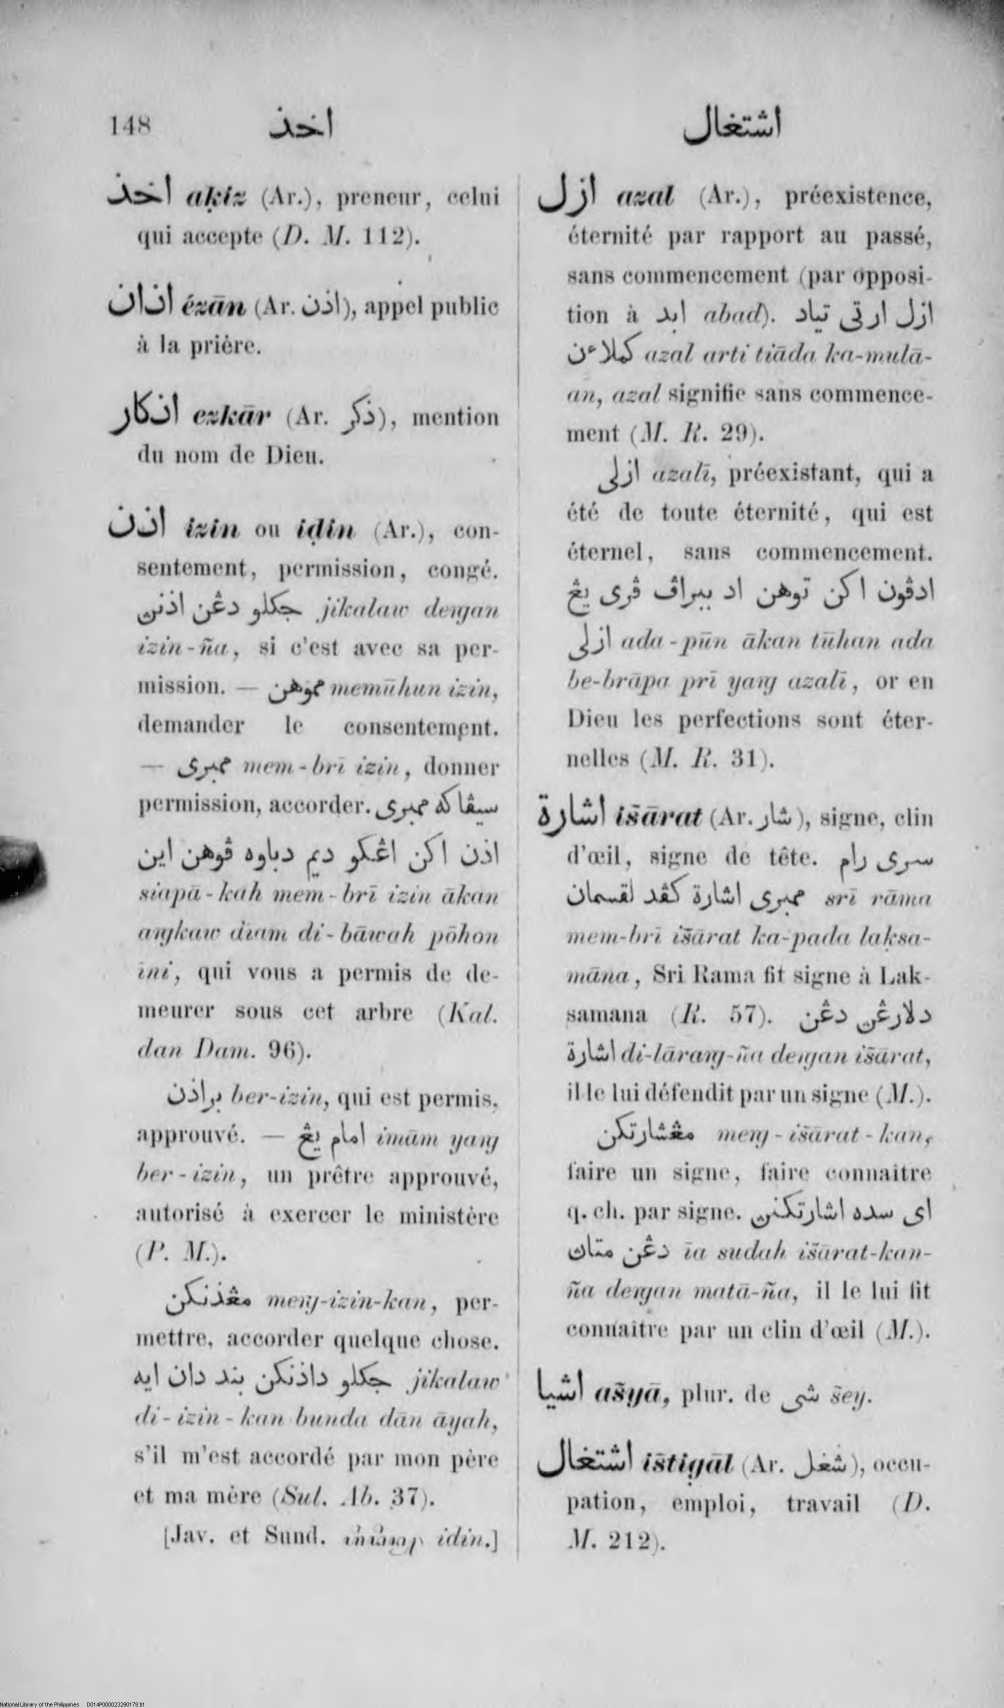 148
اخذ
اشتغال
اخذ aḳiz (Ar.), preneur, celui
qui accepte (D. M. 112).
اذان ézān (Ar. اذن), appel public
à la prière.
اذكار ezkār (Ar. ذكر), mention
du nom de Dieu.
اذن izin ou iḍin (Ar.), con-
sentement, permission, congé.
جكلو دڠن اذنڽ jikalaw deṅgan
izin-ña, si c'est avec sa per-
mission. — مموهن memūhun izin,
demander le consentement.
— ممبرى mem-brī izin, donner
permission, accorder. سيڤاكه ممبرى
اذن اكن اڠكو ديم دباوه ڤوهن اين
siapā-kah mem-brī izin ākan
aṅgkaw diam di-bāwah pōhon
īni, qui vous a permis de de-
meurer sous cet arbre (Kal.
dan Dam. 96).
براذن ber-izin, qui est permis,
approuvé. — امام يڠ imām yaṅg
ber-izin, un prêtre approuvé,
autorisé à exercer le ministère
(P. M.).
مڠذنكن meṅg-izin-kan, per-
mettre, accorder quelque chose.
جكلو داذنكن بند دان ايه jikalaw
di-izin-kan bunda dān āyah,
s'il m'est accordé par mon père
et ma mère (Sul. Ab. 37).
[Jav. et Sund. idin.]
ازل azal (Ar.), préexistence,
éternité par rapport au passé,
sans commencement (par opposi-
tion à ابد abad). ازل ارتى تياد
كملاءن azal arti tiāda ka-mulā-
an, azal signifie sans commence-
ment (M. R. 29).
ازلى azalī, préexistant, qui a
été de toute éternité, qui est
éternel, sans commencement.
ادڤون اكن توهن اد ببراڤ ڤرى يڠ
ازلى ada-pūn ākan tūhan ada
be-brāpa prī yaṅg azalī, or en
Dieu les perfections sont éter-
nelles (M. R. 31).
اشارة išārat (Ar. شار), signe, clin
d'œil, signe de tête. سرى رام
ممبرى اشارة كڤد لقسمان srī rāma
mem-brī išārat ka-pada laksa-
māna, Sri Rama fit signe à Lak-
samana (R. 57). دلارڠڽ دڠن
اشارة di-lāraṅg-ña deṅgan išārat,
il le lui défendit par un signe (M.).
مڠشارتكن meṅg-išārat-kan,
faire un signe, faire connaître
q. ch. par signe. اى سده اشارتكنڽ
دڠن متاڽ īa sudah išārat-kan-
ña deṅgan matā-ña, il le lui fit
connaître par un clin d'œil (M.).
اشيا ašyā, plur. de شى šey.
اشتغال ištigāl (Ar. شغل), occu-
pation, emploi, travail (D.
M. 212).
National Library of the Philippines